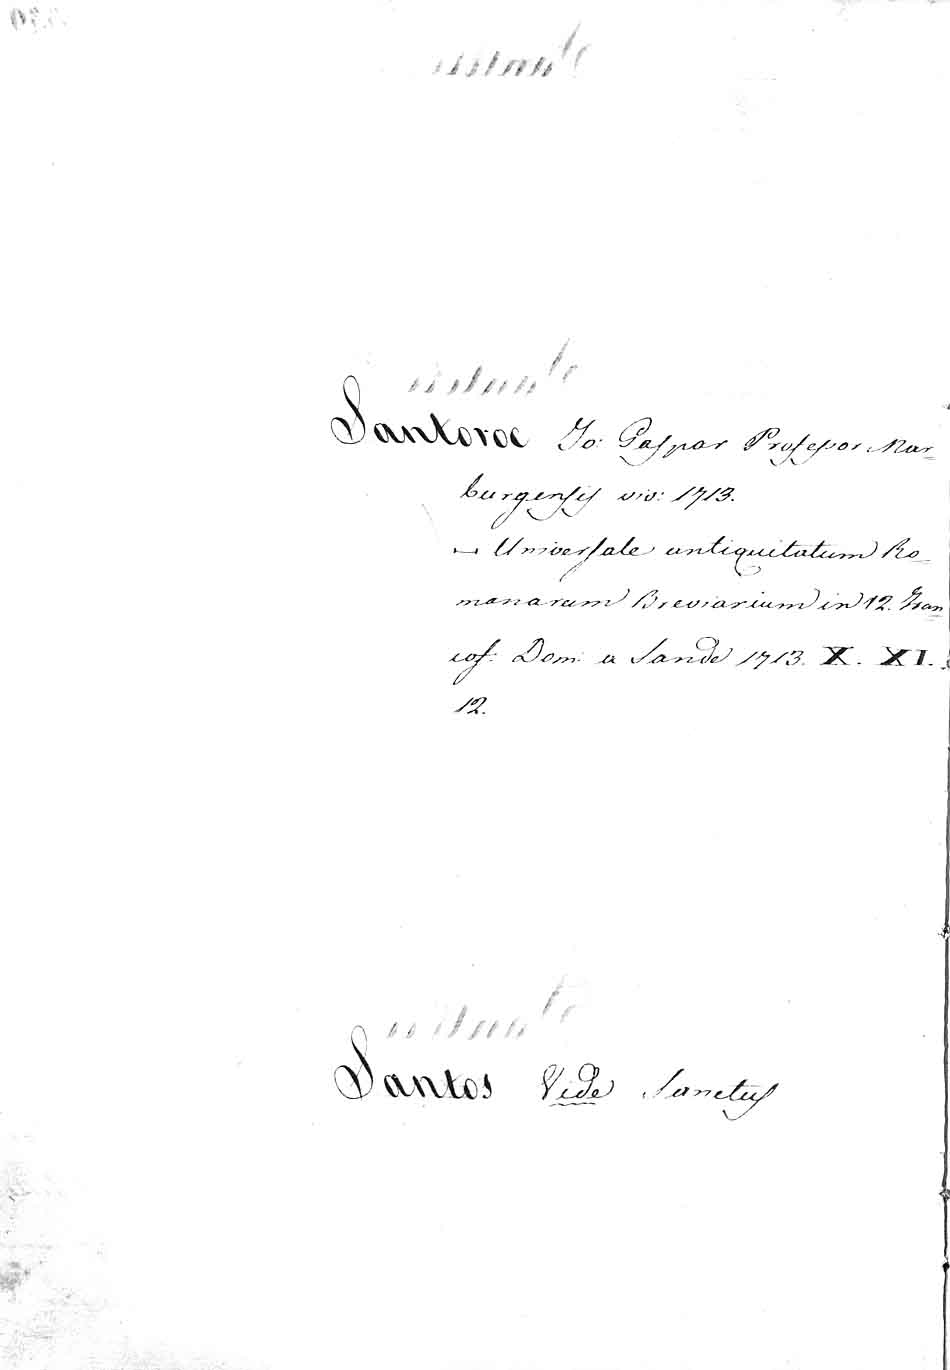 Santoroc Jo: Gaspar Professor Mar-
burgensis viv: 1713.
— Universale antiquitatum Ro-
manarum Breviarium in 12. Fran-
cof: Dom: a Sande 1713. X. XI.
12.
Santos Vide Sanctus